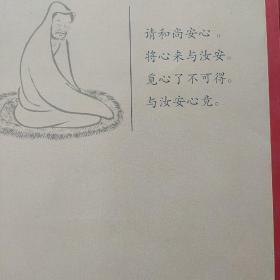 请和尚安心。
将心来与汝安。
觅心了不可得。
与汝安心竟。